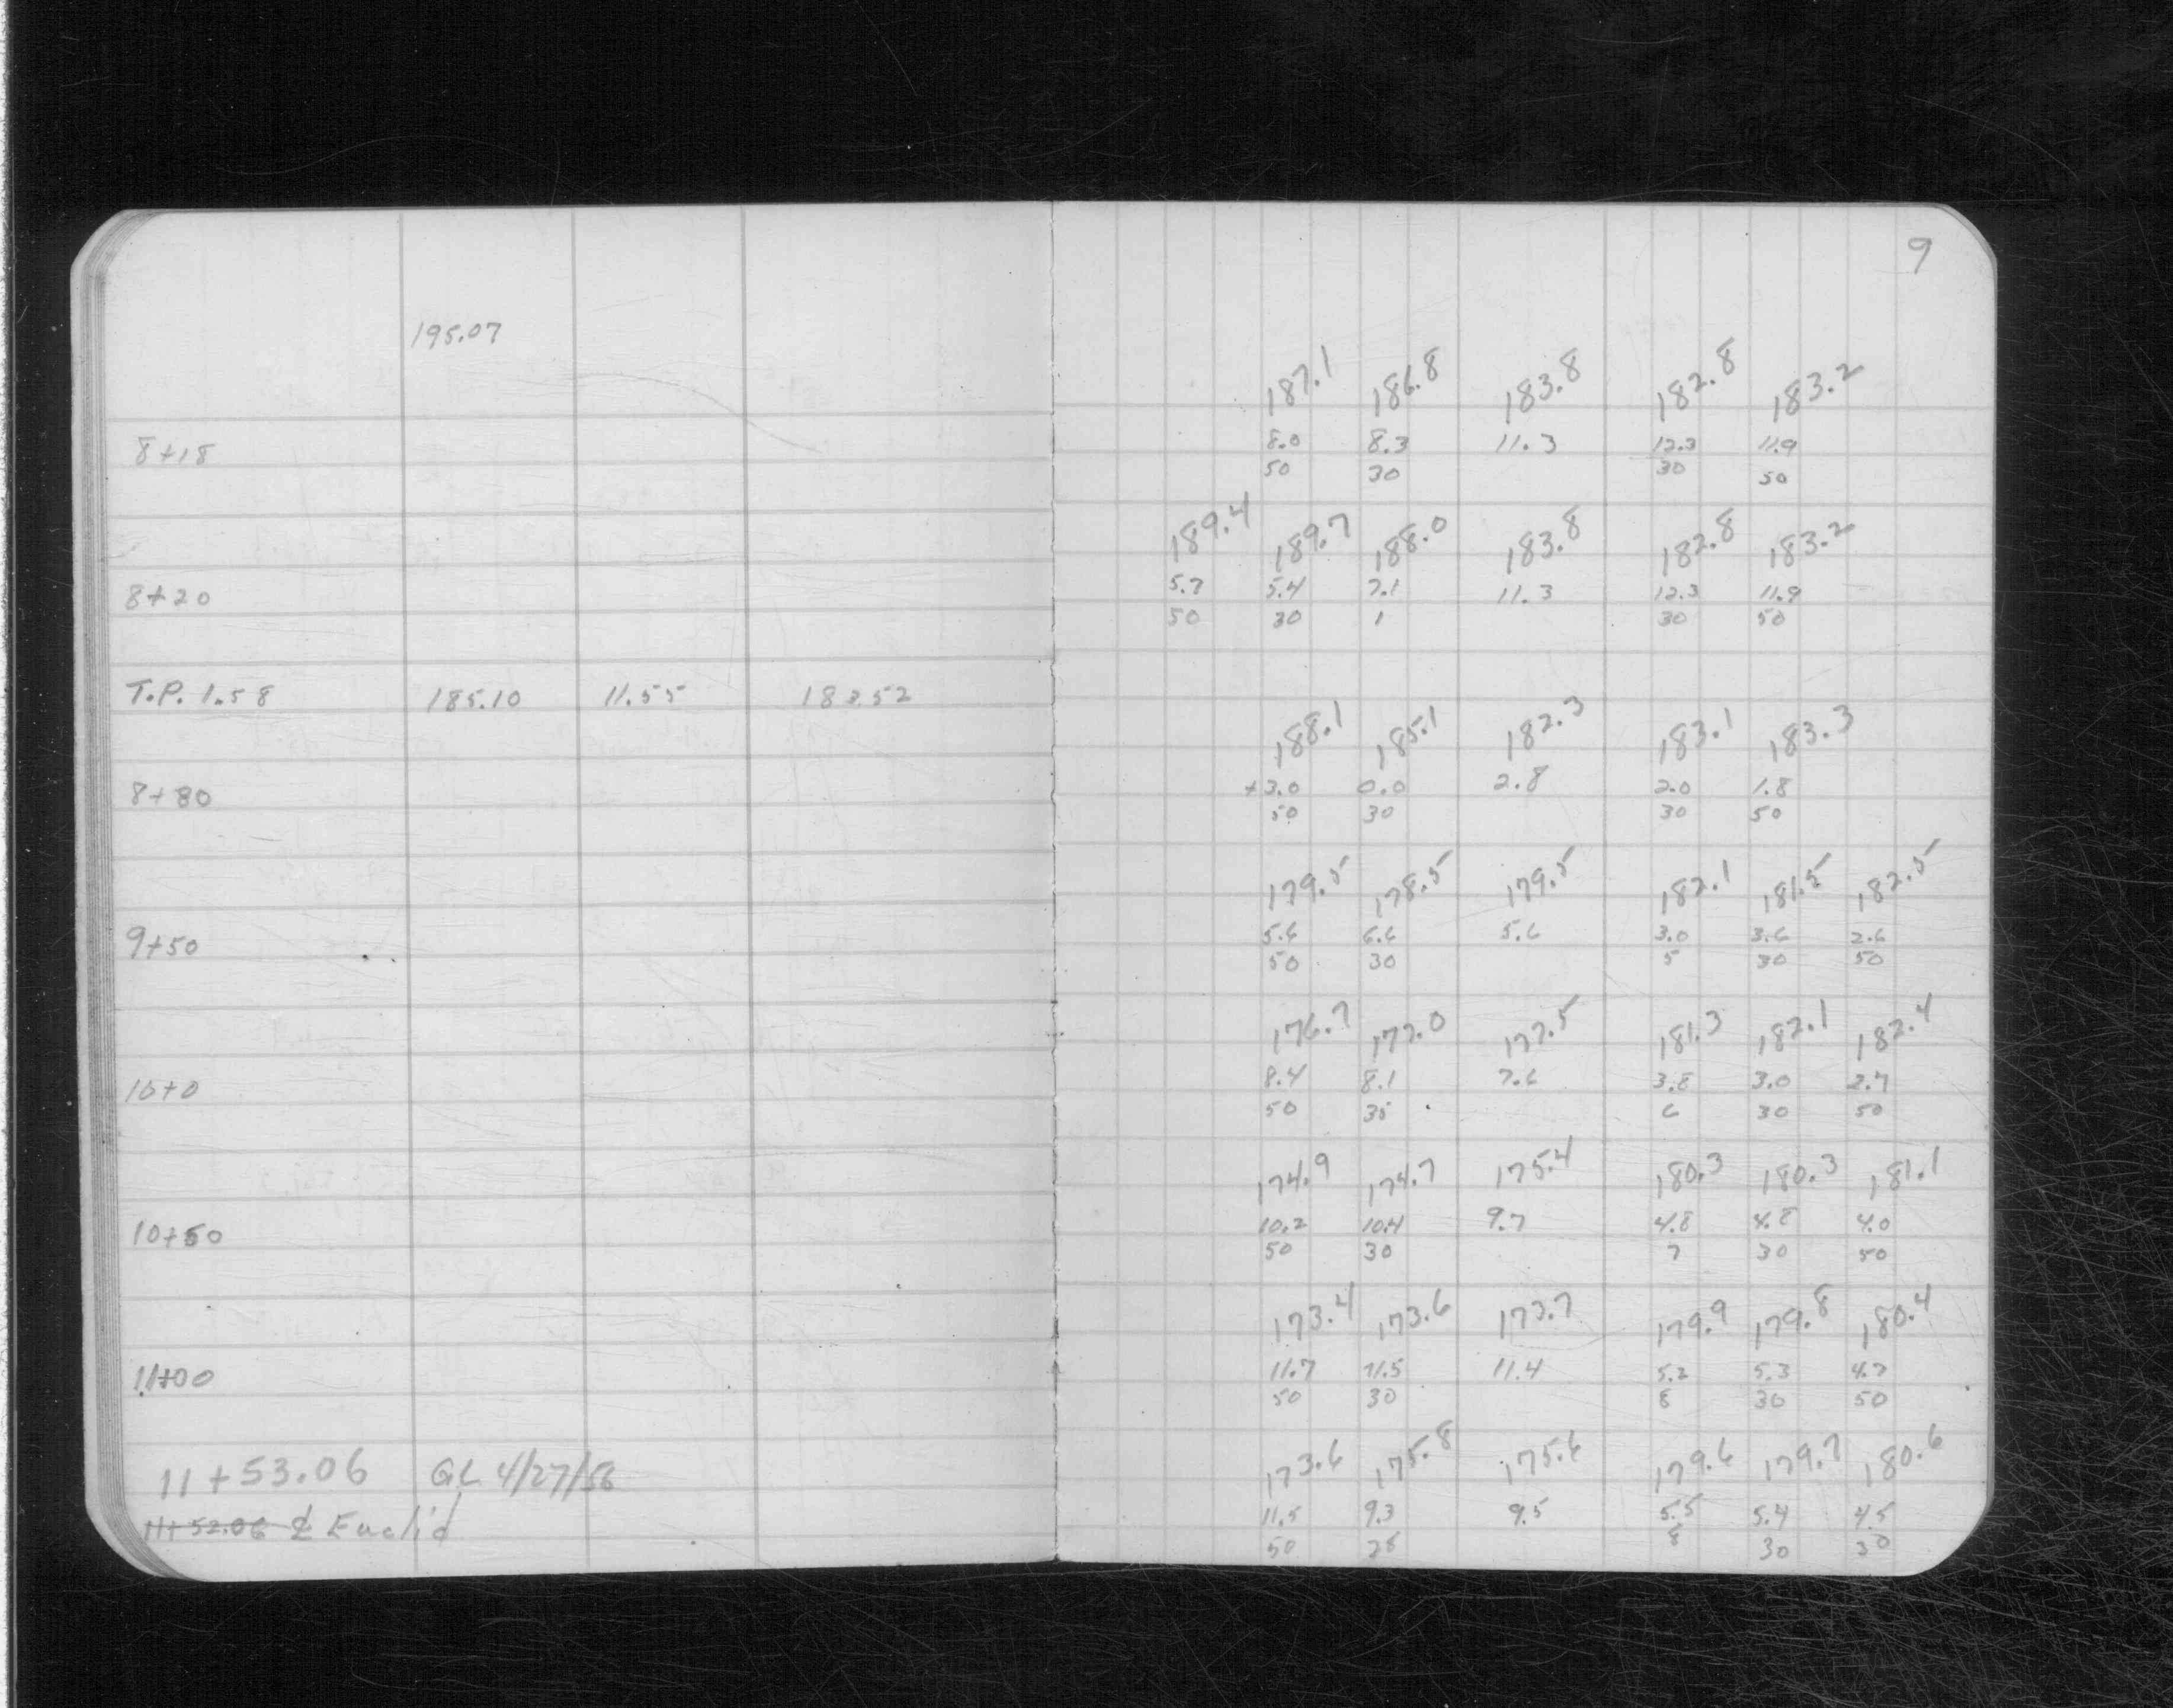 9
195.07
187.1 186.8 183.8 182.8 183.2
8+18 8.0 8.3 11.3 12.3 11.9
50 30 30 50
189.4 189.7 188.0 183.8 182.8 183.2
8+20 5.7 5.4 7.1 11.3 12.3 11.9
50 30 1 30 50
T.P. 1.58 185.10 11.55 183.52
188.1 185.1 182.3 183.1 183.3
8+80 +3.0 0.0 2.8 2.0 1.8
50 30 30 50
179.5 178.5 179.5 182.1 181.5 182.5
9+50 5.6 6.6 5.6 3.0 3.6 2.6
50 30 5 30 50
176.7 177.0 177.5 181.3 182.1 182.4
10+0 8.4 8.1 7.6 3.8 3.0 2.7
50 30 6 30 50
174.9 174.7 175.4 180.3 180.3 181.1
10+50 10.2 10.4 9.7 4.8 4.8 4.0
50 30 7 30 50
173.4 173.6 173.7 179.9 179.8 180.4
11+00 11.7 11.5 11.4 5.2 5.3 4.7
50 30 8 30 50
11+53.06 GL 4/27/56 173.6 175.8 175.6 179.6 179.7 180.6
11+52.06 ℄ Euclid 11.5 9.3 9.5 5.5 5.4 4.5
50 28 8 30 50